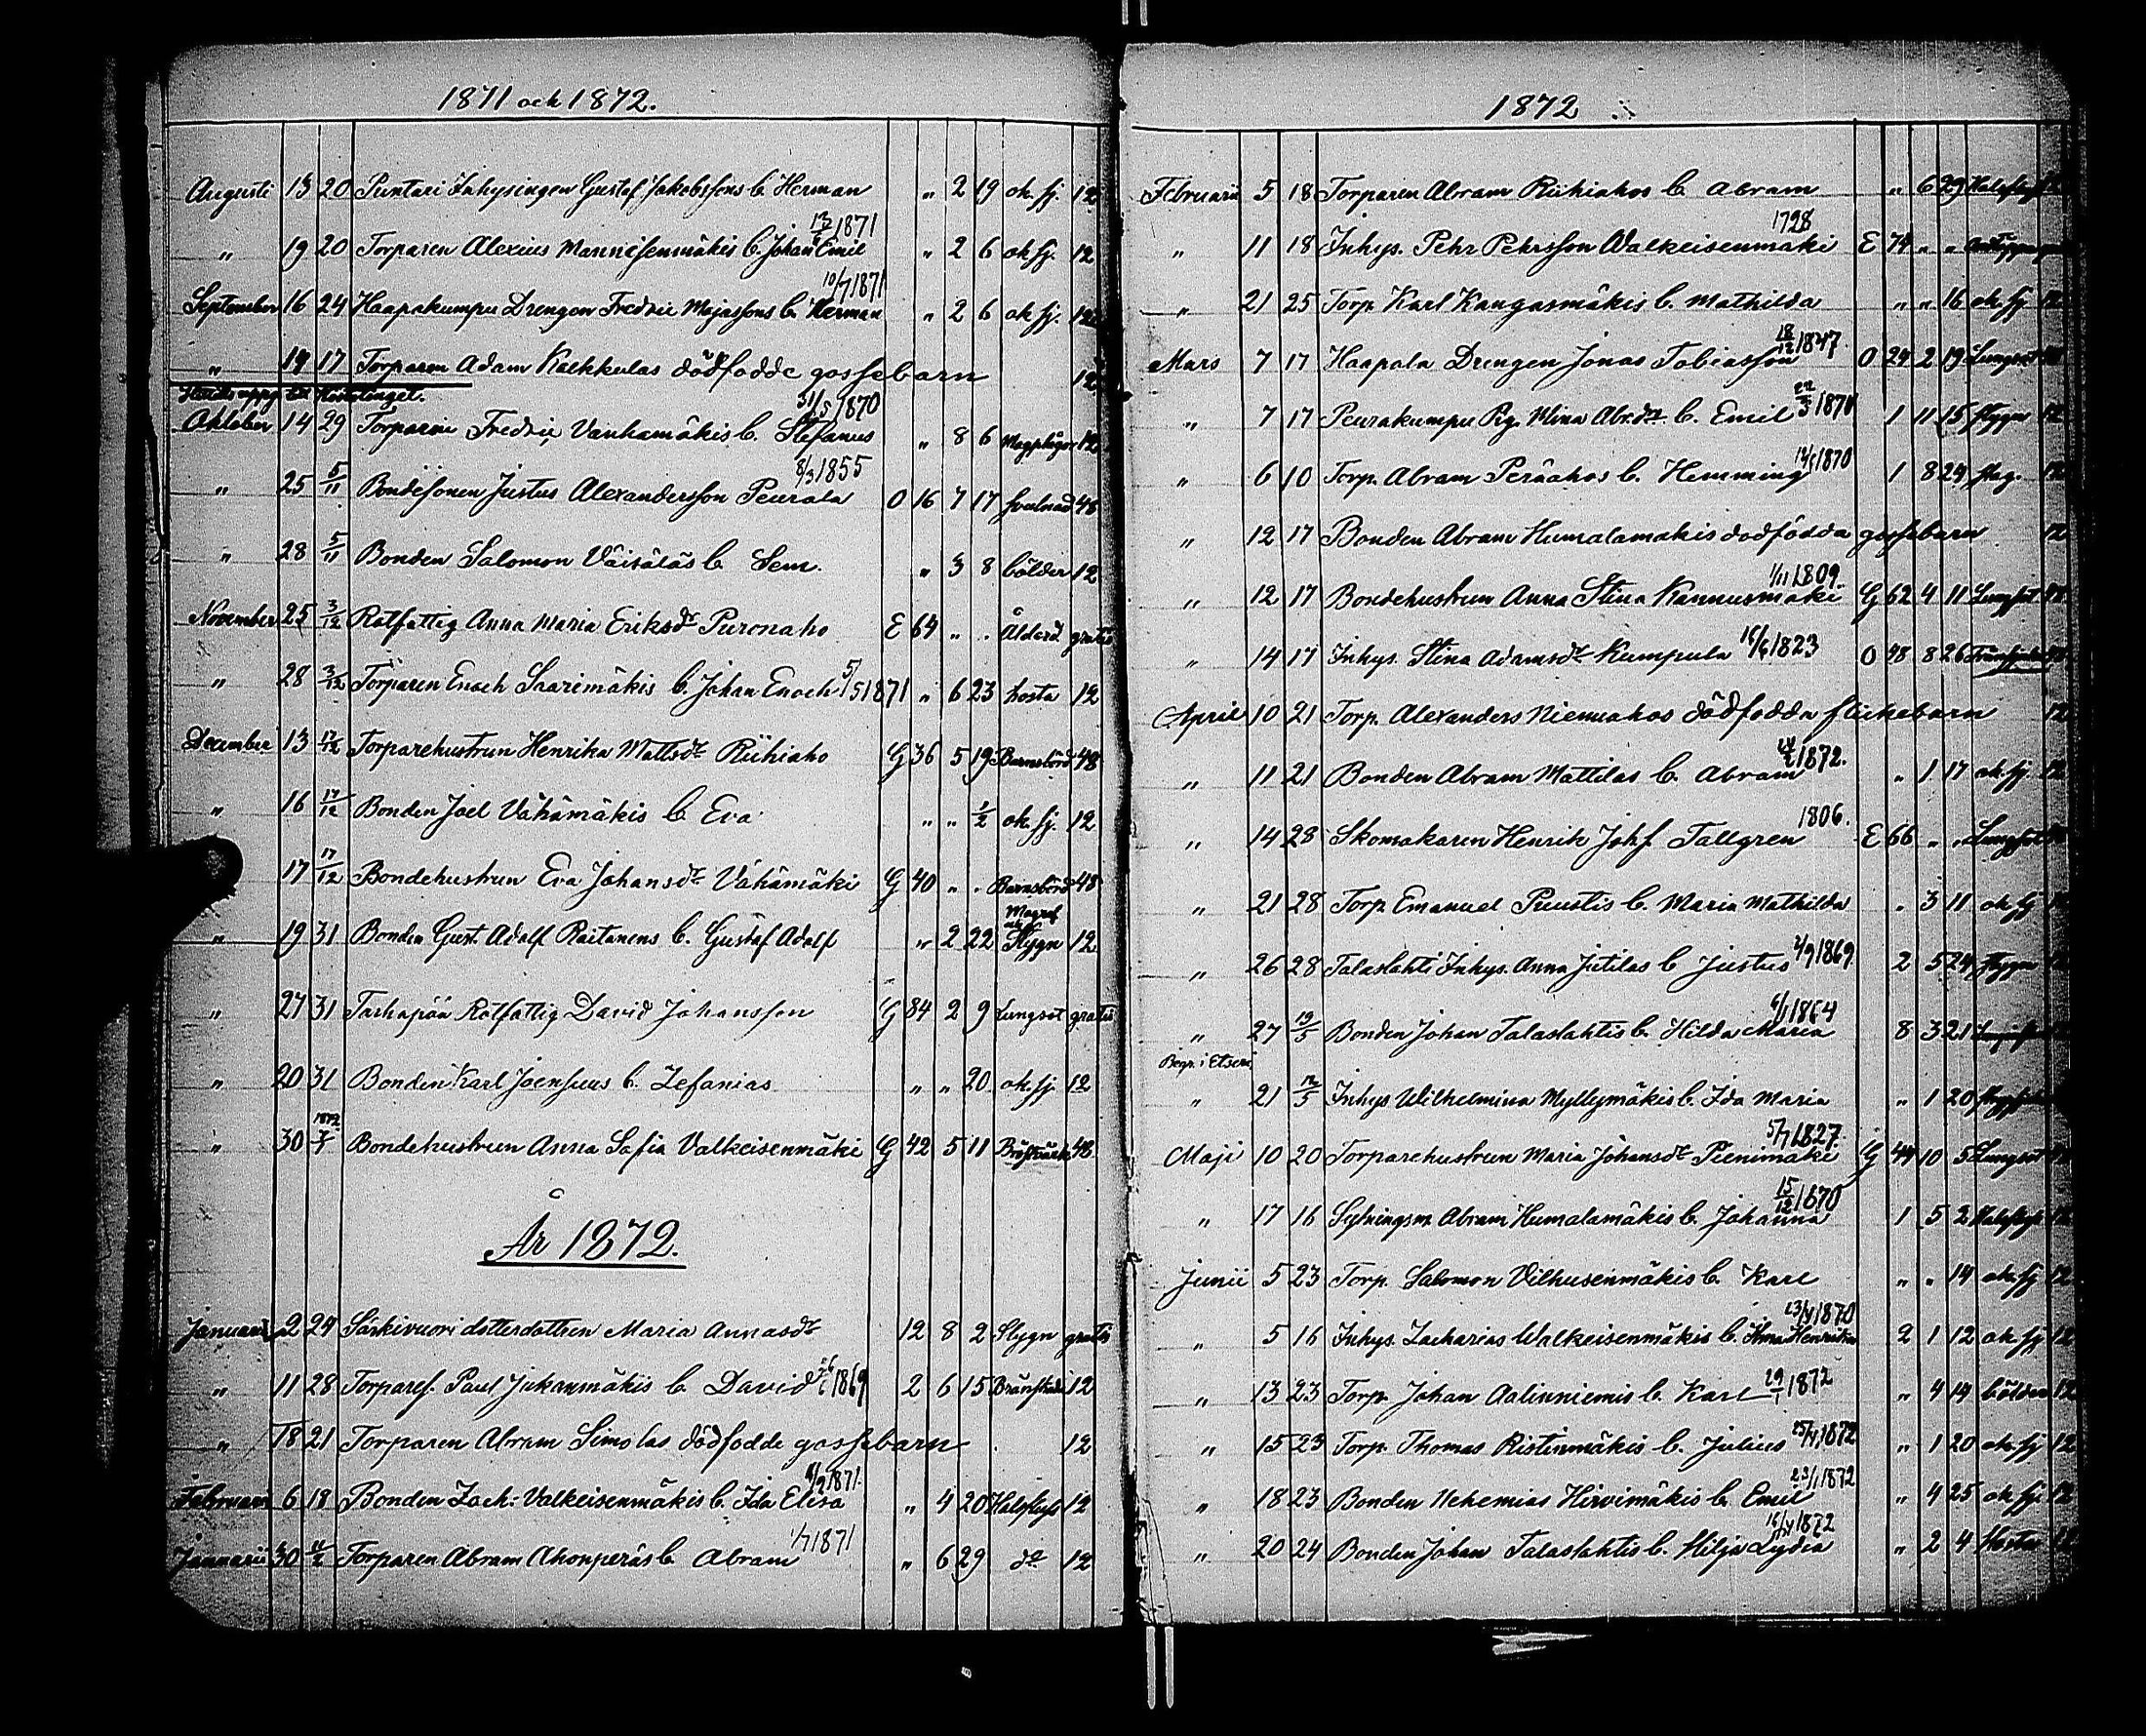 1871 och 1872.
Augusti 13 20 Puntari Inhysingen Gustaf Jakobssons b. Herman " 2 19 ok. sj. 12
13/7 1871
" 19 20 Torparen Alexius Mannisenmäkis b. Johan Emil " 2 6 ok sj. 12
10/7 1871
September 16 24 Haapakumpu Drengen Fredric Majassons b. Herman " 2 6 ok sj. 12
" 14 17 Torparen Adam Kaekkulas dödfödde gossebarn 12
31/5 1870
Oktober 14 29 Torparen Fredric Vanhamäkis b. Stefanus " 8 6 Magplågor 12
8/3 1855
" 25 5/11 Bondesonen Justus Alexandersson Peurala O 16 7 17 svulnad 48
" 28 5/11 Bonden Salomon Väisäläs b Sem. " 3 8 bölder 12
November 25 3/12 Rotfattig Anna Maria Eriksdr Puronaho E 64 " " Ålderd. gratis
" 28 3/12 Torparen Enoch Saarimäkis b. Johan Enoch 5/5 1871 " 6 23 hosta 12
December 13 17/12 Torparehustrun Henrika Mattsdr Riihiaho G 36 5 19 Barnsbörd 48
" 16 17/12 Bonden Joel Vähämäkis b Eva " " 1/2 ok. sj. 12
" 17 17/12 Bondehustrun Eva Johansdr Vähämäki G 40 " " Barnsbörd 48
" 19 31 Bonden Gust. Adolf Raitanens b. Gustaf Adolf " 2 22 Slygn 12
" 27 31 Tarhapää Rotfattig David Johansson G 84 2 9 Lungsot gratis
" 20 31 Bonden Karl Joensuus b. Zefanias " " 20 ok. sj. 12
" 30 1872 Bondehustrun Anna Sofia Valkeisenmäki G 42 5 11 Bröstvärk 48
År 1872.
Januarii 2 24 Särkivuori dotterdottren Maria Annasdr 12 8 2 Slygn gratis
" 11 28 Torparef. Paul Jukanmäkis b David 1869 2 6 15 Brånskada 12
" 18 21 Torparen Abram Simolas dödfödde gossebarn 12
9/9 1871
Februarii 6 18 Bonden Zach: Valkeisenmäkis b. Ida Elisa " 4 20 Halsfluss 12
1/7 1871
Januarii 30 4/2 Torparen Abram Ahonperäs b Abram " 6 29 do 12
1872
Februarii 5 18 Torparen Abram Riihiahos b. Abram " 6 29
1798
" 11 18 Inhys. Pehr Pehrsson Walkeisenmäki E 74 " "
" 21 25 Torp. Karl Kangasmäkis b. Mathilda " " 16 ok sj 12
18/12 1847
Mars 7 17 Haapala Drengen Jonas Tobiasson O 24 2 19 Lungsot
22/3 1870
" 7 17 Peurakumpu Pig. Mina Abr.dr b. Emil 1 11 15 slygn 12
1870
" 6 10 Torp. Abram Peräahos b. Hemming 1 8 24 slag. 12
" 12 17 Bonden Abram Humalamäkis dödfödda gossebarn 12
1/11 1809.
" 12 17 Bondehustrun Anna Stina Kannusmäki G 62 4 11 Lungsot
" 14 17 Inhys. Stina Adamsdr Kumpula 16/6 1823 O 48 8 26
April 10 21 Torp. Alexanders Niemiahos dödfödda flickebarn 12
1872.
" 11 21 Bonden Abram Mattilas b. Abram " 1 17 ok sj. 12
1806.
" 14 28 Skomakaren Henrik Johs Tallgren E 66 " " Lungsot
" 21 28 Torp. Emanuel Puustis b. Maria Mathilda " 3 11 ok sj
" 26 28 Talaslahti Inhys. Anna Jutilas b Justus 2/9 1869. 2 5 24 slygn
6/1 1864
" 27 19/5 Bonden Johan Talaslahtis b. Hilda Maria 8 3 21
Begr. i Etseri
" 21 12/5 Inhys Wilhelmina Myllymäkis b. Ida Maria " 1 20
5/7 1827.
Maji 10 20 Torparehustrun Maria Johansdr Pienimäki G 44 10 5 Lungsot
15/12 1870
" 17 16 Sytningsm Abram Humalamäkis b. Johanna 1 5 2
Junii 5 23 Torp. Salomon Vilhusenmäkis b. Karl " " 14 ok. sj 12
23/4 1870
" 5 16 Inhys. Zacharias Walkeisenmäkis b. Alma Henrika 2 1 12 ok sj 12
" 13 23 Torp. Johan Aalinniemis b. Karl 29/1 1872 " 4 14 bölder 12
" 15 23 Torp. Thomas Ristinmäkis b. Julius 25/4 1872 " 1 20 ok. sj 12
23/1 1872
" 18 23 Bonden Nehemias Hirvimäkis b. Emil " 4 25 ok sj. 12
16/4 1872
" 20 24 Bonden Johan Talaslahtis b. Hilja Lydia " 2 4 Hosta 12